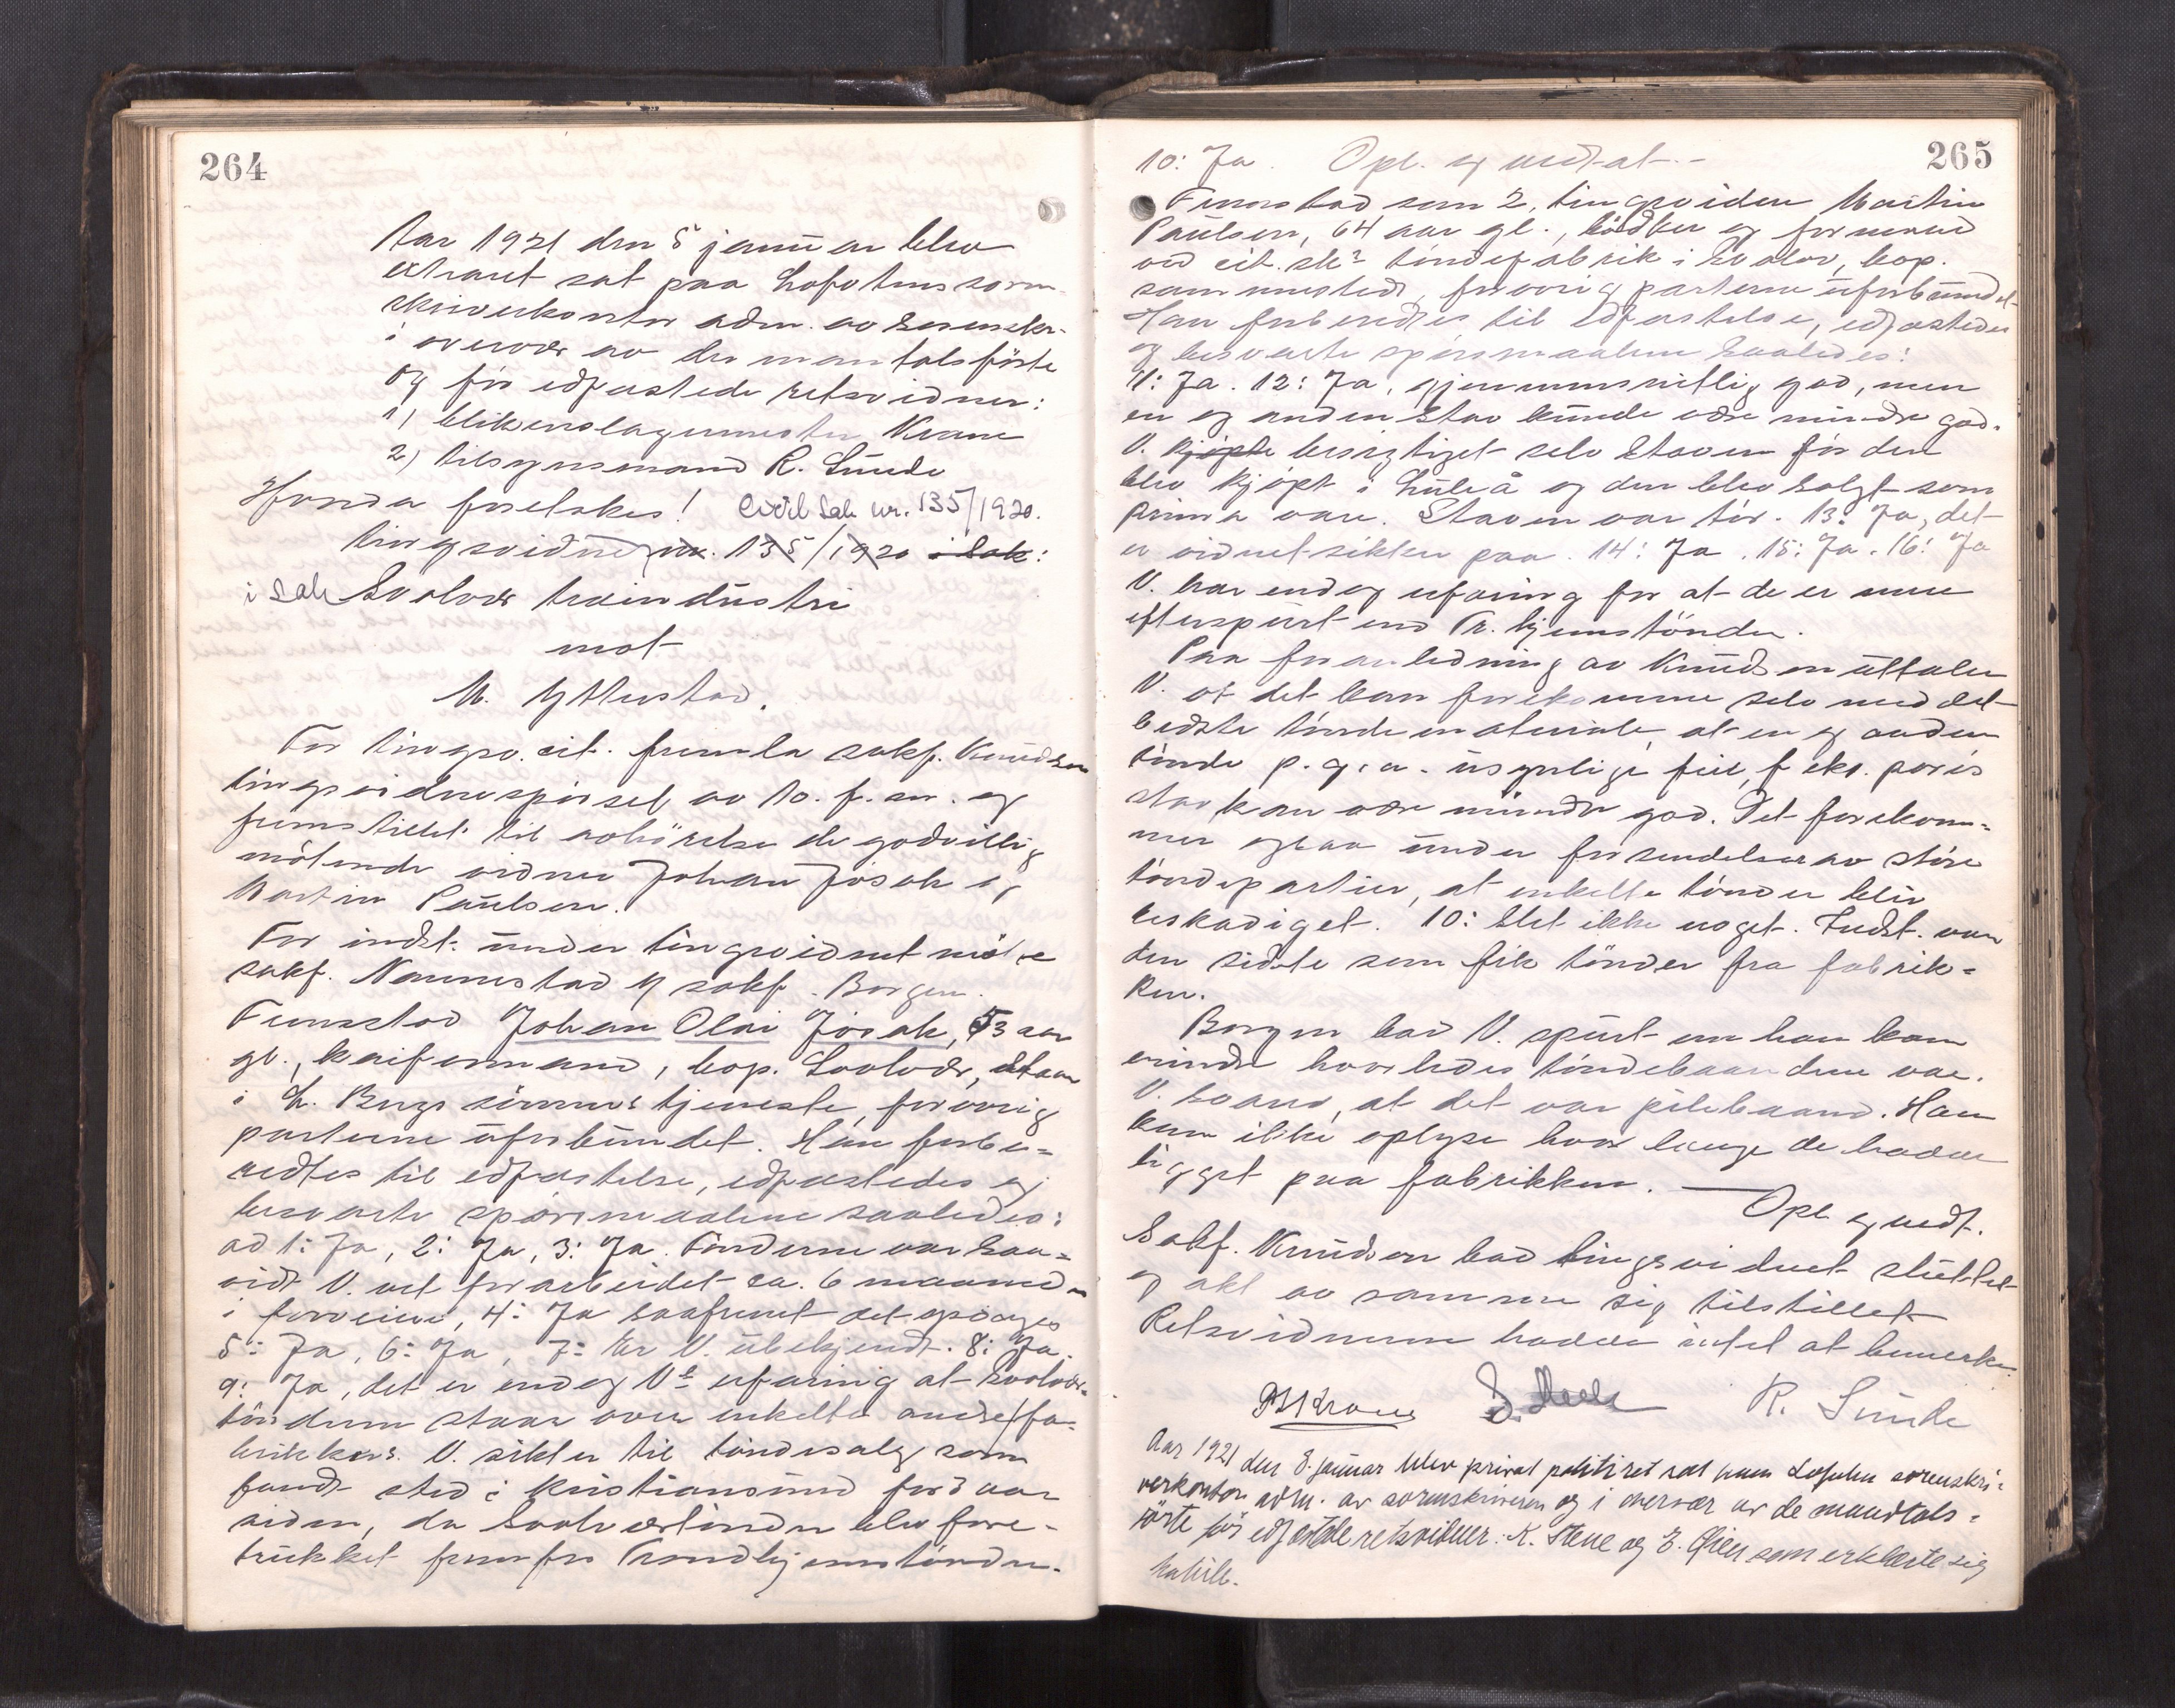 264
Aar 1921 den 5 januar blev
extraret sat paa Lofotens soren-
skriverkontor adm. av sorenskr.
i overvær av de mantalsførte
og før edfæstede retsvidner:
1) blikenslagermester Krane
2) tilsynsmand R. Sunde
Hvorda foretokes! Civil Sak nr. 135/1920.
tingsvidne nr. 135/1920 i Sak:
i Sak Svolvær traindustri
mot
M. Ytterstad.
For tingsv. cit. fremla sakf. Knudsen
tingsvidnespørsel av 10. f. m. og
fremstillet til avhørelse de godvillig
møtende vidner Johan Josak og
Martin Paulsen.
For indst. under tingsvidnet møtte
sakf. Nannestad v/ sakf. Borgen.
Fremstod Johan Olai Josak, 53 aar
gl., kaiformand, bop. Svolvær, staar
i L. Bergs sønners tjeneste, forøvrig
parterne uforbundet. Han forbe-
redtes til edfæstelse, edfæstedes og
besvarte spørsmaalene saaledes:
ad 1: Ja, 2: Ja, 3: Ja. Tønderne var saa-
vidt V. vet forarbeidet ca. 6 maaneder
i forveien, 4: Ja saafremt det opsøges
5: Ja, 6: Ja, 7: Er V. ubekjendt. 8: Ja.
9: Ja, det er endog V's erfaring at Svolvær-
tønderne staar over enkelte andre fa-
brikkers. V. sikter til tøndesalg som
fandt sted i Kristiansund for 3 aar
siden, da Svolværtønder blev fore-
trukket frem for Trondhjemstønder.
265
10: Ja. Opl. og vedtat.-
Fremstod som 2. tingsvidne Martin
Paulsen, 64 aar gl., bødker og formand
ved cit. sk's tøndefabrik i Svolvær, bop.
sammesteds, forøvrig parterne uforbundet
Han forberedtes til edfæstelse, edfæstedes
og besvarte spørsmaalene saaledes:
11: Ja. 12: Ja, gjennemsnitlig god, men
en og anden stav kunde være mindre god.
V. kjøpte besigtiget selv staven før den
blev kjøpt i Luleå og den blev solgt som
prima vare. Staven var tør. 13: Ja, det
er vidnet sikker paa. 14: Ja. 15: Ja. 16: Ja
V. har endog erfaring for at de er mere
efterspurt end Tr.hjemstønder.
Paa foranledning av Knudsen uttaler
V. at det kan forekomme selv med det
bedste tøndemateriale, at en og anden
tønde p. gr. a. usynlige feil, f. eks. porøs
stav kan være mindre god. Det forekom-
mer ogsaa under forsendelser av større
tøndepartier, at enkelte tønder blir
beskadiget. 10: Slet ikke noget. Indst. var
den sidste som fik tønder fra fabrik-
ken.
Borgen bad V. spurt om han kan
erindre hvorledes tøndebaandene var.
V. svarer, at det var pilebaand. Han
kan ikke oplyse hvor længe de hadde
ligget paa fabrikken. — Opl. og vedt.
Sakf. Knudsen bad tingsvidnet sluttet
og akt av samme sig tilstillet
Retsvidnerne hadde intet at bemerke.
R. Sunde
Aar 1921 den 8. januar blev privat politiret sat paa Lofoten sorenskri-
verkontor adm. av sorenskriveren og i overvær av de mandtals-
førte før edfæstede retsvidner: K. Stene og E. som erklærte sig
habile.